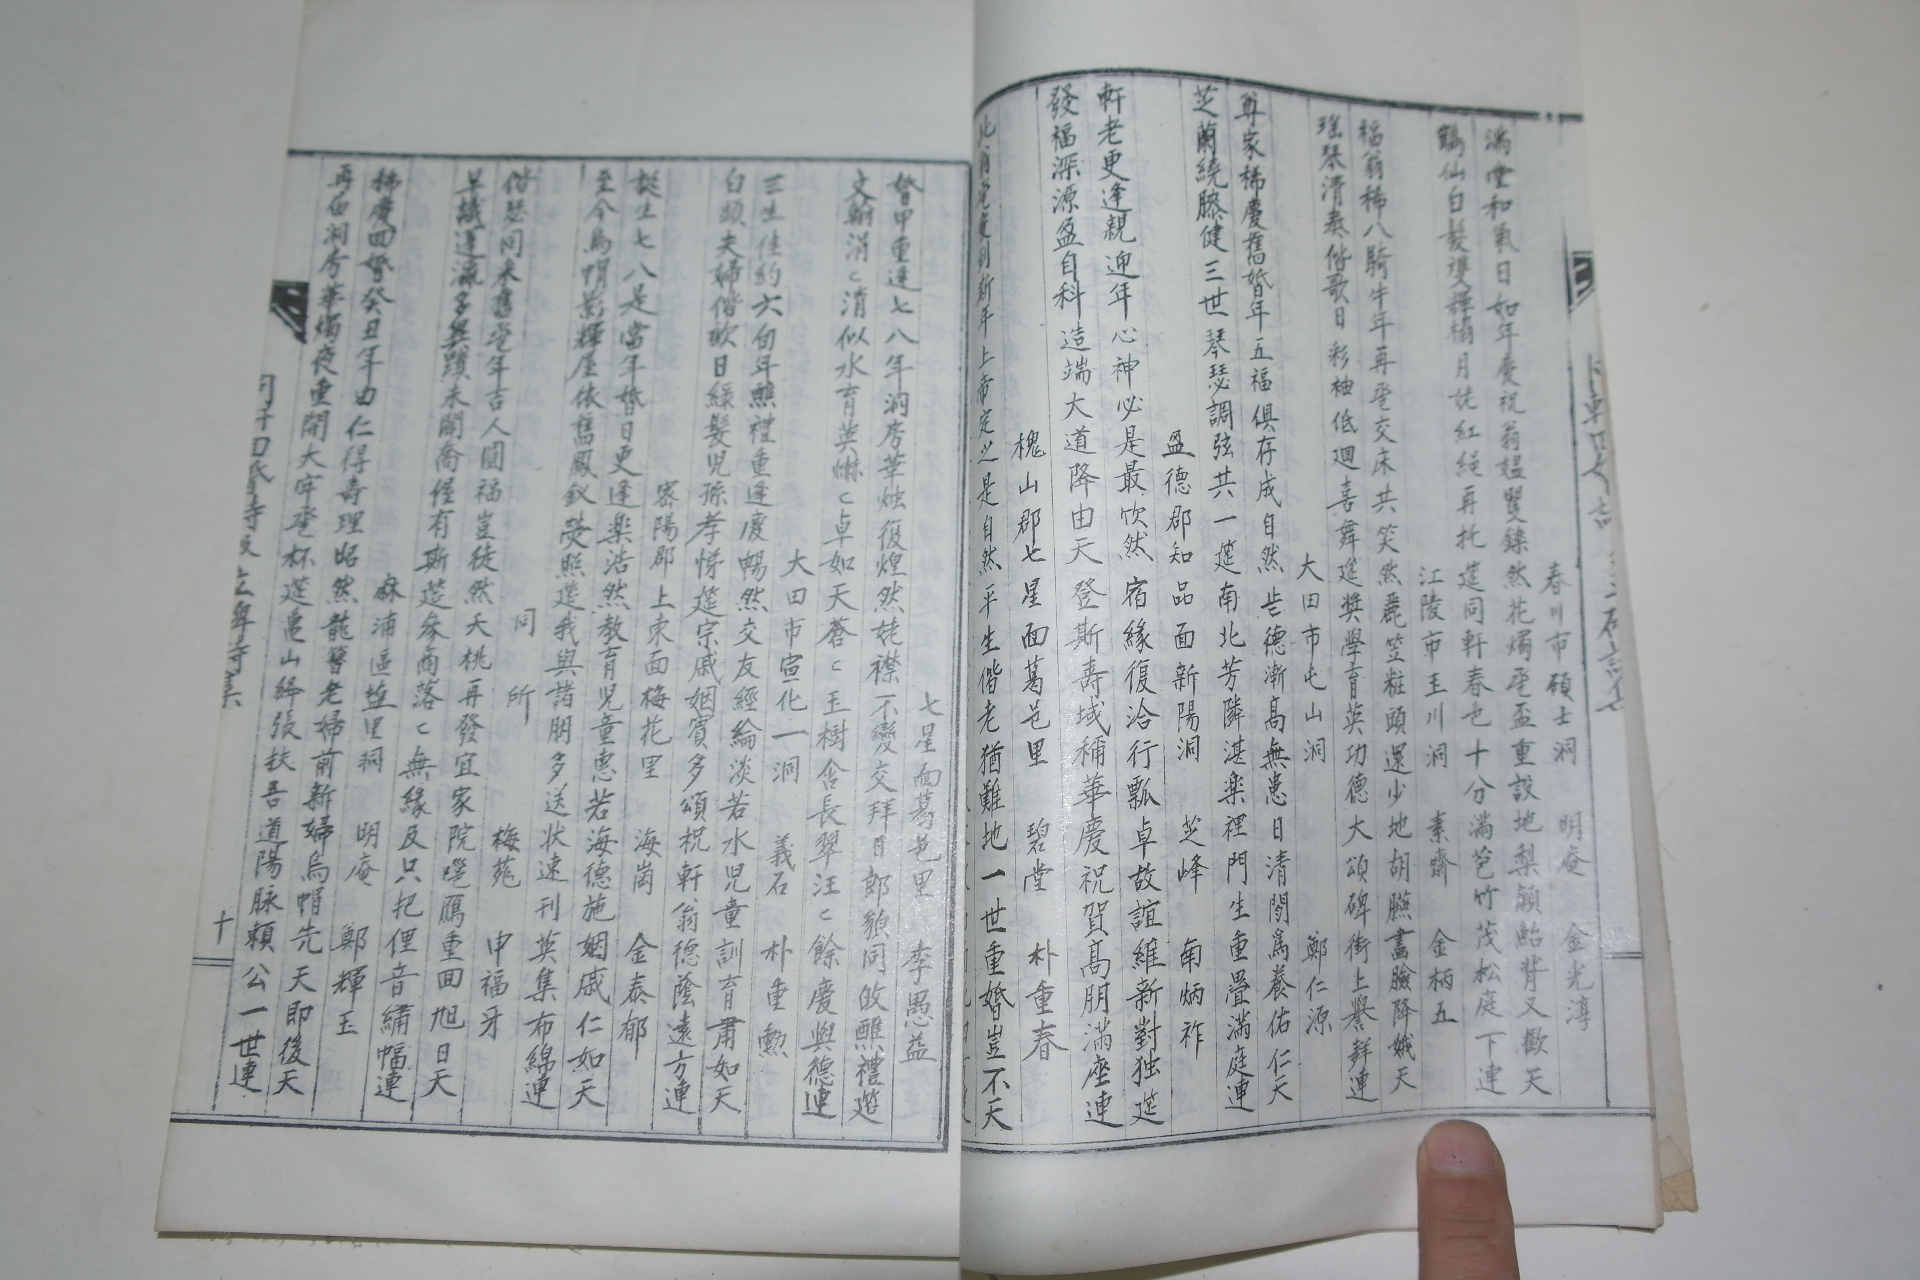 春川市碩士洞 明庵 金光淳
滿堂和氣日如年慶祝翁媼雙鑠然花燭重設地梨顔鮐背又歡天
鶴仙白髮雙舞榻月姥紅繩再托筵同軒春色十分滿苞竹茂松庭下連
江陵市玉川洞 素齋 金柄五
福翁稀八騎牛年再登交床共笑然麗笠粧頭還少地胡臙畵臉降娥天
瑤琴清奏偕歌日彩袖低廻喜舞筵奬學育英功德大頌碑街上譽群連
大田市屯山洞 鄭仁源
尊家稀慶舊婚年五福俱存成自然齒德漸高無患日清閒爲養佑仁天
芝蘭繞膝健三世琴瑟調弦共一筵南北芳隣湛楽裡門生重疊滿庭連
盈德郡知品面新陽洞 芝峰 南炳祚
軒老更逢親迎年心神必是最欣然宿緣復洽行瓢卺故誼維新對独筵
發福深源盈自科造端大道降由天登斯壽域稱華慶祝賀高朋滿座連
槐山郡七星面葛邑里 碧堂 朴重春
年上帝定之是自然平生偕老猶難地一世重婚豈不天
七星面葛邑里 李愚益
婚甲重逢七八年洞房華烛復煌然姥襟不變交拜日郎貌同攸醮禮筵
文翰涓〻清似水育英爀〻卓如天蒼〻玉樹含長翠汪〻餘慶與德連
大田市宣化一洞 義石 朴重勳
三生佳約六旬年醮禮重逢慶暢然交友經綸淡若水児童訓育肅如天
白頭夫婦偕歡日綠髮児孫孝悌筵宗戚姻賓多頌祝軒翁德蔭遠方連
密陽郡上東面梅花里 海崗 金泰郁
誕生七八是當年婚日更逢楽浩然教育児童恵若海德施姻戚仁如天
至今烏帽影輝屋依舊鳳釵熒照筵我與諸朋多送状速刊英集布綿連
同所 梅苑 申福牙
偕琴同来舊登年吉人圓福豈徒然夭桃再發宜家院嗈鴈重回旭日天
早識蓬瀛多異蹟未聞喬偓有斯筵參商落〻無緣及只把俚音繡幅連
麻浦區塩里洞 明庵 鄭輝玉
稀慶回婚癸丑年由仁得壽理昭然龍簪老婦前新婦烏帽先天即後天
再回洞房華燭夜重開大牢登杯筵亀山絳張扶吾道陽脉賴公一世連
十